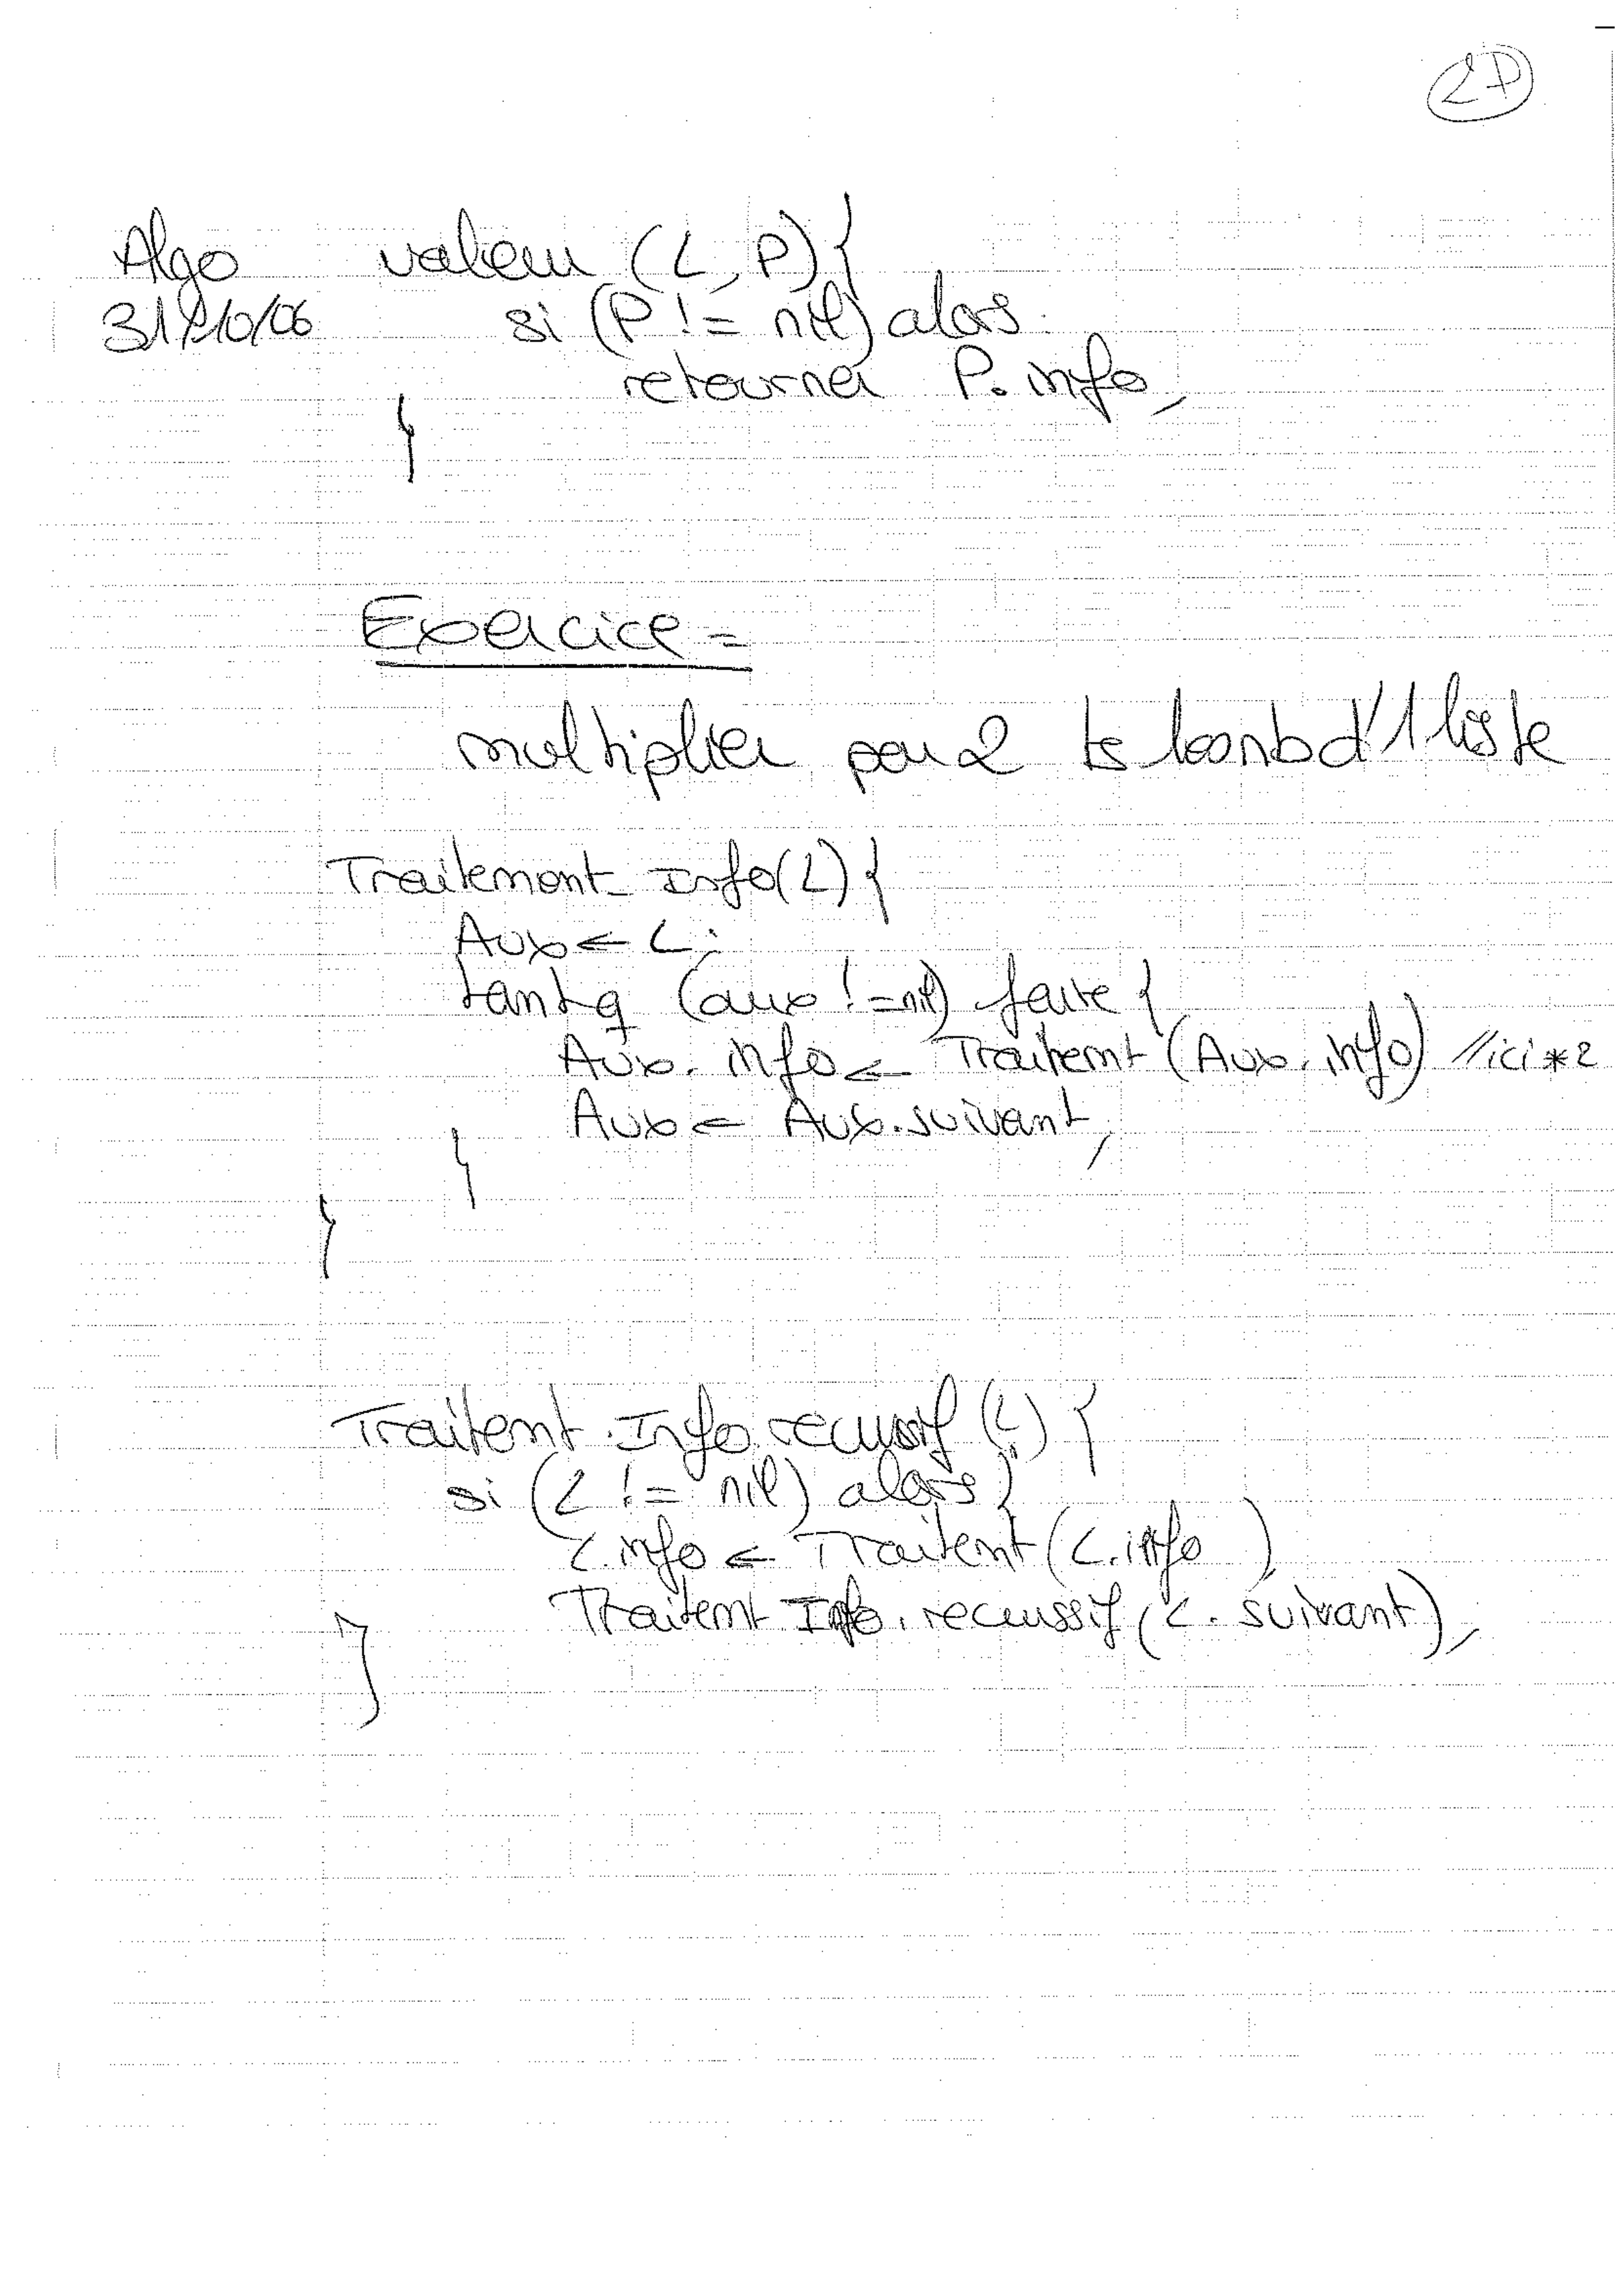 2P
Algo valeur (L, P) {
31/10/06 si (P != nil) alors
retourner P.info;
}
Exercice =
multiplier par 2 ts les nb d'1 liste
Traitement_Info(L) {
Aux ← L;
tant q (aux != nil) faire {
Aux.info ← Traitemt (Aux.info) //ici *2
Aux ← Aux.suivant;
}
}
Traitemt.Info.recursif (L) {
si (L != nil) alors {
L.info ← Traitemt (L.info)
Traitemt Info.recurssif (L.suivant);
}